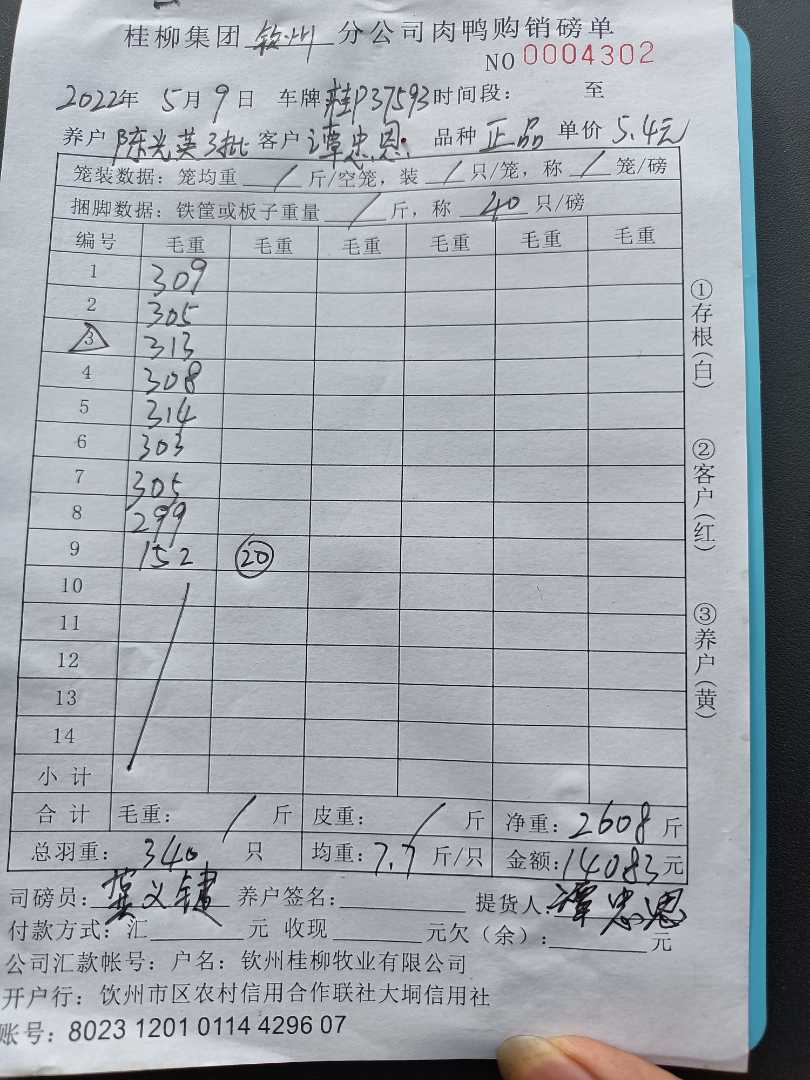 桂柳集团 钦州 分公司肉鸭购销磅单
NO 0004302
2022年 5月9日 车牌桂P37593时间段: 至
养户 陈光英3批 客户 谭忠恩 品种 正品 单价 5.4元
笼装数据:笼均重 / 斤/空笼,装 / 只/笼,称 / 笼/磅
捆脚数据:铁筐或板子重量 / 斤,称 40 只/磅
编号 毛重 毛重 毛重 毛重 毛重 毛重
1 309
2 305
3 313
4 308
5 314
6 303
7 305
8 299
9 152 20
10
11
12
13
14
小计
合计 毛重: / 斤 皮重: / 斤 净重:2608斤
总羽重:340只 均重:7.7斤/只 金额:14083元
司磅员: 龚义键 养户签名: 提货人:谭忠恩
付款方式:汇 元 收现 元欠(余): 元
公司汇款帐号:户名:钦州桂柳牧业有限公司
开户行:钦州市区农村信用合作联社大垌信用社
账号:8023 1201 0114 4296 07
①存根(白)
②客户(红)
③养户(黄)